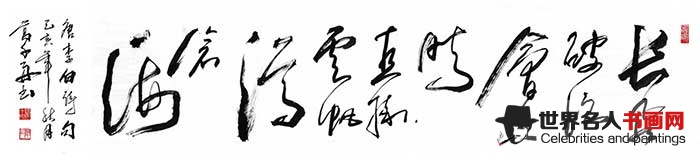 长风
破浪
會有
时
直挂
云帆
济
滄
海
唐李白诗句
己亥年秋月
世界名人书画网
Celebrities and paintings